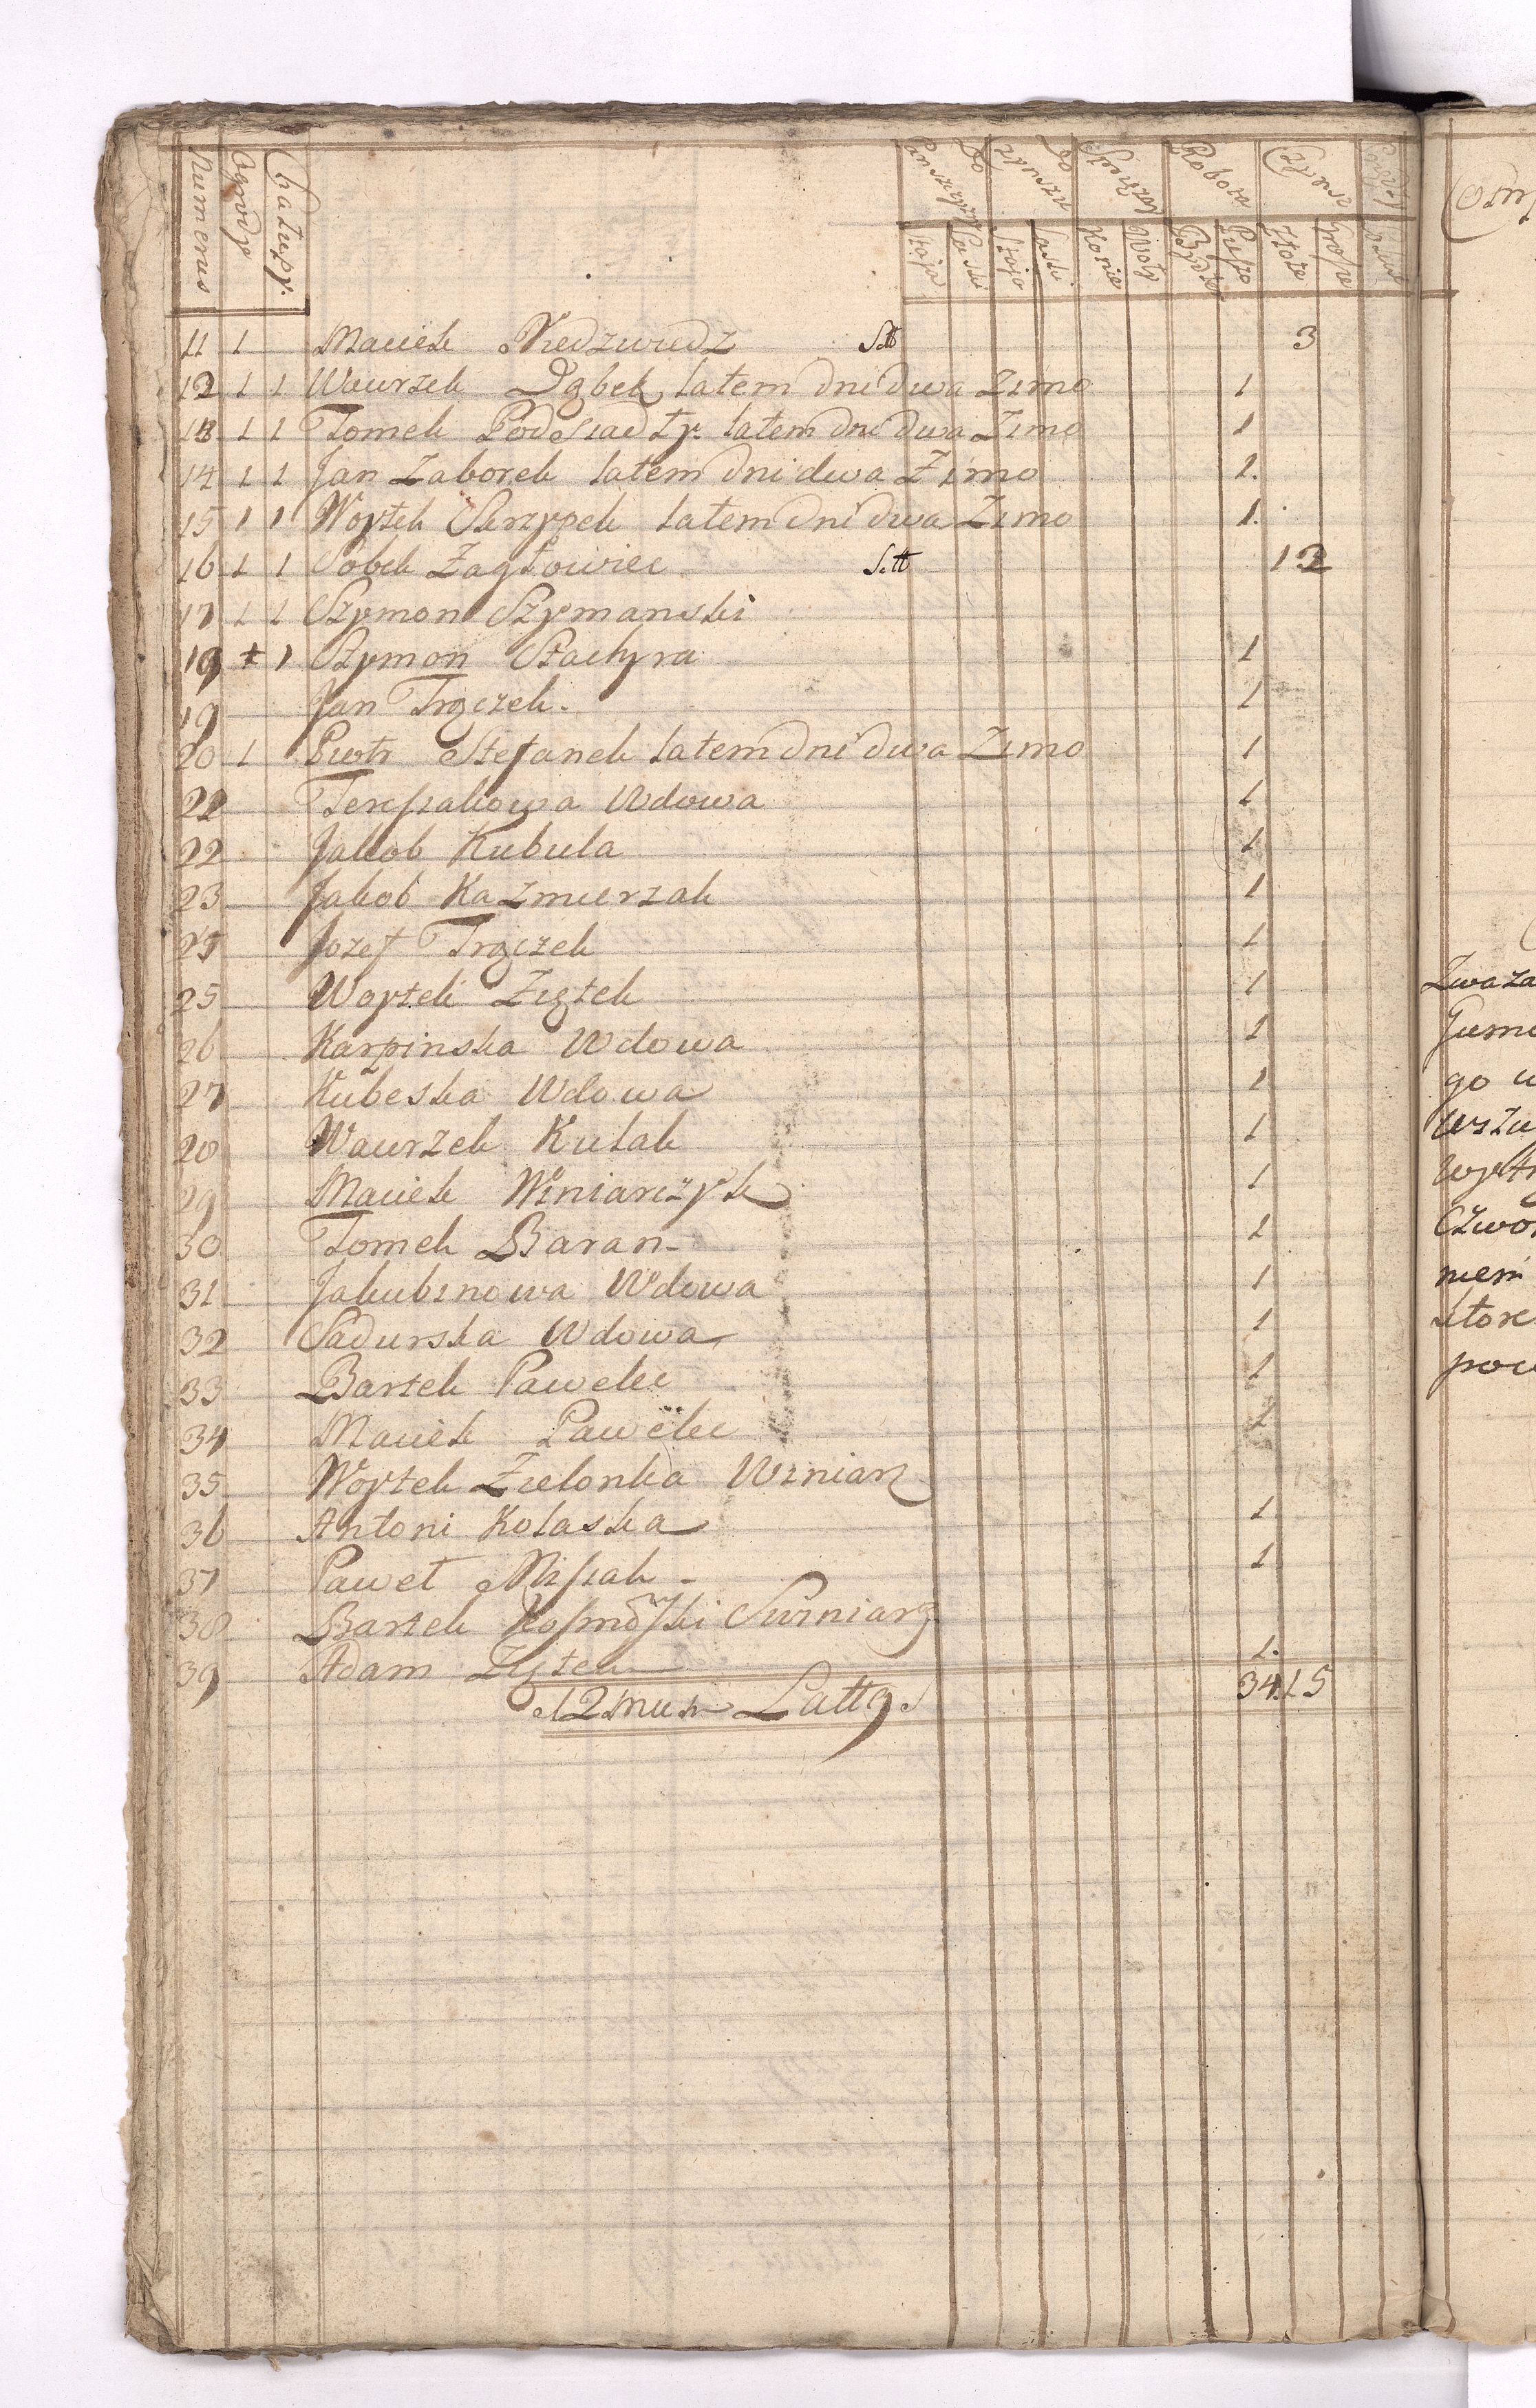 Numerus Ogrodze Chałupy Robota
Staja Laski Stajo Laski Konie Woły Bydłe Pieszo Złote Grosze
11 1 Maciek Niedzwiedz Sitt 3
12 1 1 Wawrzek Dąbek latem dni dwa Zimo 1
13 1 1 Tomek Podsiadły latem dni dwa Zimo 1
14 1 1 Jan Zaborek latem dni dwa Zimo 1.
15 1 1 Woytek Skrzypek latem dni dwa Zimo 1.
16 1 1 Sobek Zagłowiec Sitt 12
17 1 1 Szymon Szymanski
18 1 1 Szymon Stachyra 1
19 Jan Trączek. 1
20 1 Piotr Stefanek latem dni dwa Zimo 1
22 Teresiakowa Wdowa 1
22 Jakob Kubula 1
23 Jakob Kazmierzak 1
25 Jozef Trączek 1
25 Woytek Ziętek 1
26 Karpinska Wdowa 1
27 Kubeska Wdowa 1
28 Wawrzek Kutak 1
29 Maciek Winiarczyk 1
30 Tomek Baran 1
31 Jakubinowa Wdowa 1
32 Sadurska Wdowa 1
33 Bartek Pawelec 1
34 Maciek Pawelec 1
35 Woytek Zielonka Winiarz
36 Antoni Kolaska 1
37 Paweł Misiak 1
38 Bartek Kosmoski Suiniarz
39 Adam Ziętek 1.
Latus 34.15
Zwaza
go w
Czwo
niem
ktore